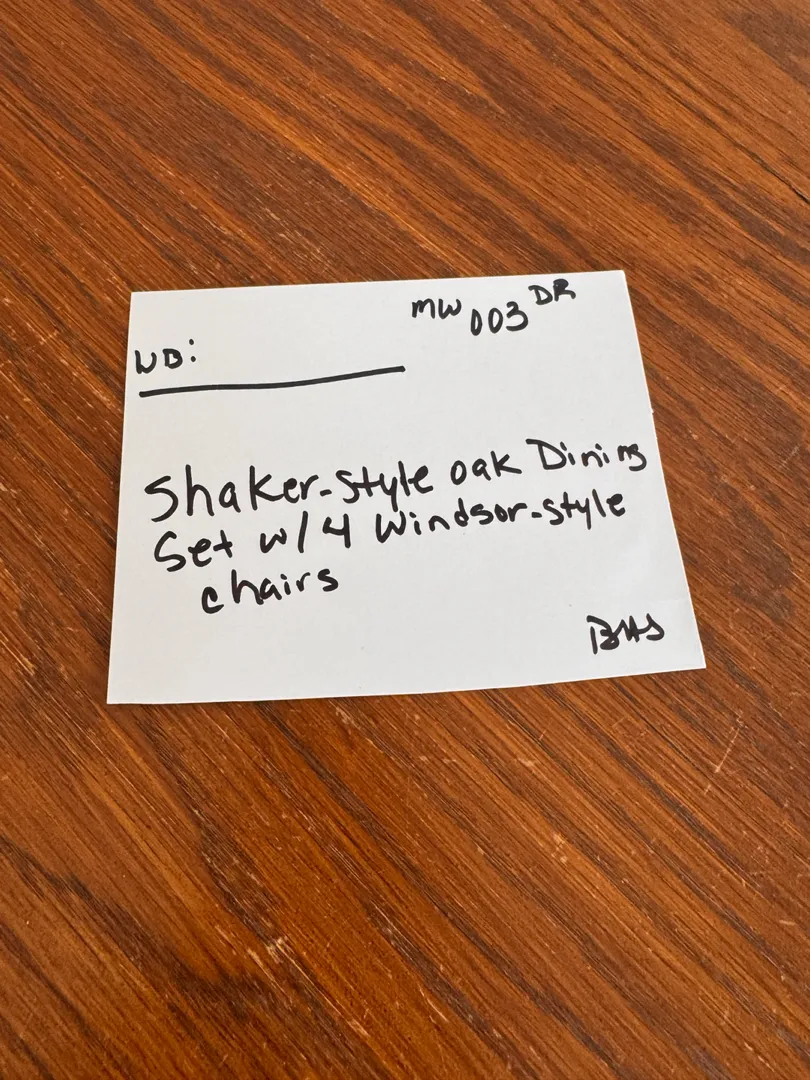 MW 003 DR
WB:
Shaker-Style oak Dining
Set w/ 4 Windsor-style
chairs